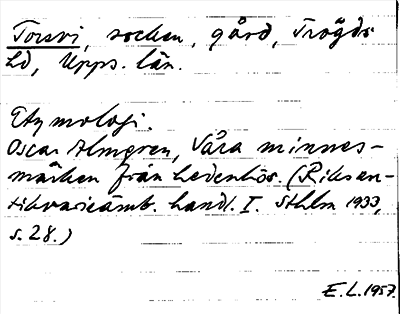 Torsvi, socken, gård, Trögds
hd, Upps. län.
Etymologi.
Oscar Almgren, Våra minnes-
märken från hedenhös. (Riksan-
tikvarieämb. handl. I. Sthlm 1933,
s. 28.)
E.L. 1957.